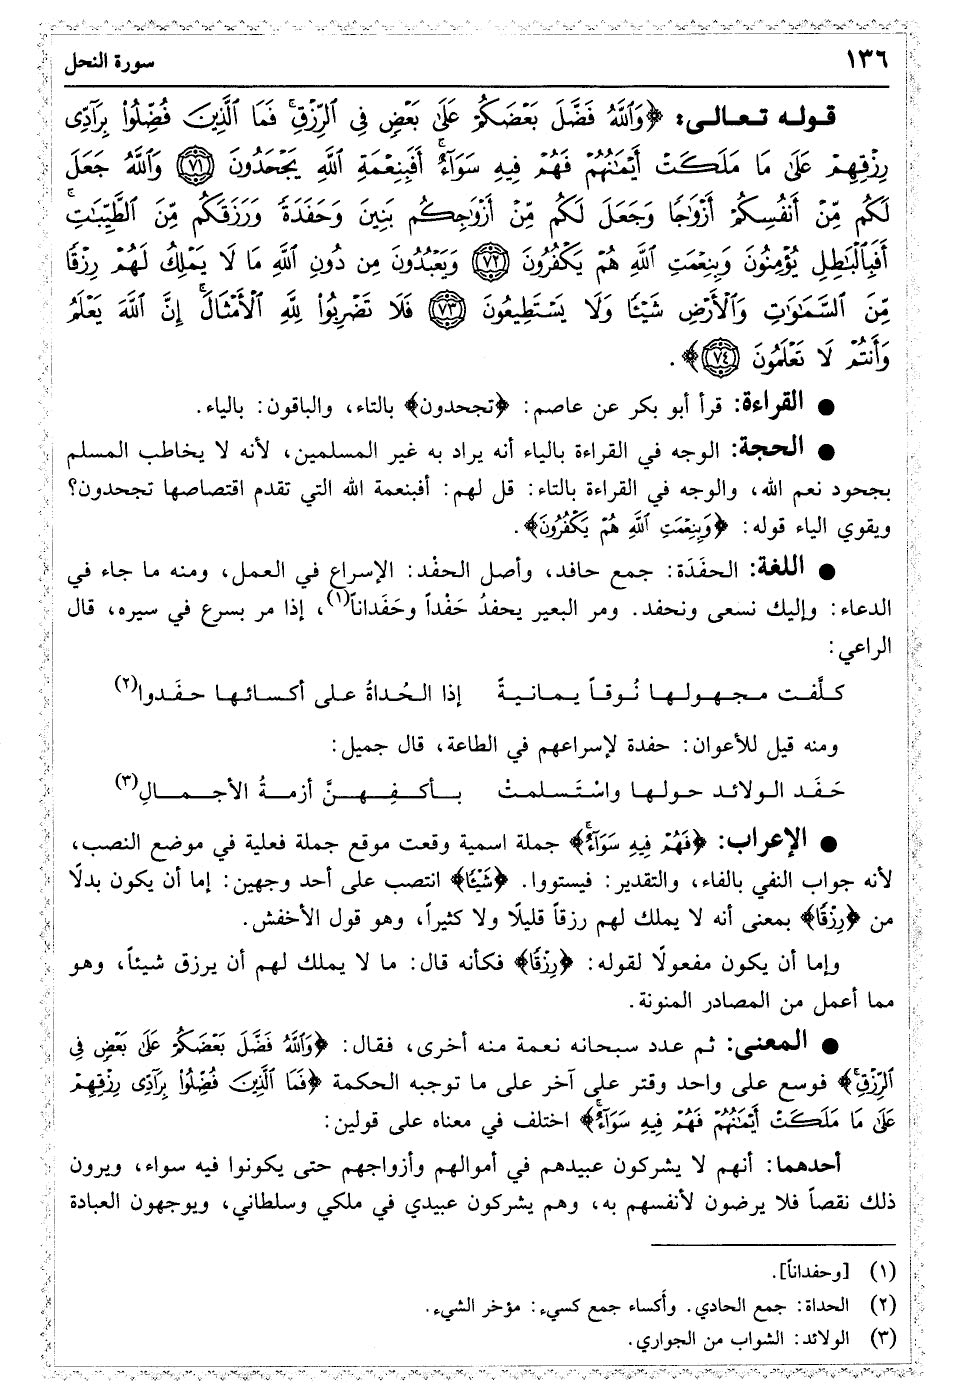 ١٣٦ سورة النحل
قوله تعالى: ﴿وَٱللَّهُ فَضَّلَ بَعۡضَكُمۡ عَلَىٰ بَعۡضٖ فِي ٱلرِّزۡقِۚ فَمَا ٱلَّذِينَ فُضِّلُواْ بِرَآدِّي
رِزۡقِهِمۡ عَلَىٰ مَا مَلَكَتۡ أَيۡمَٰنُهُمۡ فَهُمۡ فِيهِ سَوَآءٌۚ أَفَبِنِعۡمَةِ ٱللَّهِ يَجۡحَدُونَ ٧١ وَٱللَّهُ جَعَلَ
لَكُم مِّنۡ أَنفُسِكُمۡ أَزۡوَٰجٗا وَجَعَلَ لَكُم مِّنۡ أَزۡوَٰجِكُم بَنِينَ وَحَفَدَةٗ وَرَزَقَكُم مِّنَ ٱلطَّيِّبَٰتِۚ
أَفَبِٱلۡبَٰطِلِ يُؤۡمِنُونَ وَبِنِعۡمَتِ ٱللَّهِ هُمۡ يَكۡفُرُونَ ٧٢ وَيَعۡبُدُونَ مِن دُونِ ٱللَّهِ مَا لَا يَمۡلِكُ لَهُمۡ رِزۡقٗا
مِّنَ ٱلسَّمَٰوَٰتِ وَٱلۡأَرۡضِ شَيۡـٔٗا وَلَا يَسۡتَطِيعُونَ ٧٣ فَلَا تَضۡرِبُواْ لِلَّهِ ٱلۡأَمۡثَالَۚ إِنَّ ٱللَّهَ يَعۡلَمُ
وَأَنتُمۡ لَا تَعۡلَمُونَ ٧٤﴾.
● القراءة: قرأ أبو بكر عن عاصم: ﴿تجحدون﴾ بالتاء، والباقون: بالياء.
● الحجة: الوجه في القراءة بالياء أنه يراد به غير المسلمين، لأنه لا يخاطب المسلم
بجحود نعم الله، والوجه في القراءة بالتاء: قل لهم: أفبنعمة الله التي تقدم اقتصاصها تجحدون؟
ويقوي الياء قوله: ﴿وَبِنِعۡمَتِ ٱللَّهِ هُمۡ يَكۡفُرُونَ﴾.
● اللغة: الحفَدَة: جمع حافد، وأصل الحفْد: الإسراع في العمل، ومنه ما جاء في
الدعاء: وإليك نسعى ونحفد. ومر البعير يحفدُ حَفْداً وحَفَداناً(١)، إذا مر بسرع في سيره، قال
الراعي:
كلَّفت مجهولها نُوقاً يمانيةً إذا الحُداةُ على أكسائها حفَدوا(٢)
ومنه قيل للأعوان: حفدة لإسراعهم في الطاعة، قال جميل:
حَفَد الولائد حولها واسْتَسلمتْ بأكفِهنَّ أزمةُ الأجمالِ(٣)
● الإعراب: ﴿فَهُمۡ فِيهِ سَوَآءٌۚ﴾ جملة اسمية وقعت موقع جملة فعلية في موضع النصب،
لأنه جواب النفي بالفاء، والتقدير: فيستووا. ﴿شَيۡـٔٗا﴾ انتصب على أحد وجهين: إما أن يكون بدلًا
من ﴿رِزۡقٗا﴾ بمعنى أنه لا يملك لهم رزقاً قليلًا ولا كثيراً، وهو قول الأخفش.
وإما أن يكون مفعولًا لقوله: ﴿رِزۡقٗا﴾ فكأنه قال: ما لا يملك لهم أن يرزق شيئاً، وهو
مما أعمل من المصادر المنونة.
● المعنى: ثم عدد سبحانه نعمة منه أخرى، فقال: ﴿وَٱللَّهُ فَضَّلَ بَعۡضَكُمۡ عَلَىٰ بَعۡضٖ فِي
ٱلرِّزۡقِۚ﴾ فوسع على واحد وقتر على آخر على ما توجبه الحكمة ﴿فَمَا ٱلَّذِينَ فُضِّلُواْ بِرَآدِّي رِزۡقِهِمۡ
عَلَىٰ مَا مَلَكَتۡ أَيۡمَٰنُهُمۡ فَهُمۡ فِيهِ سَوَآءٌۚ﴾ اختلف في معناه على قولين:
أحدهما: أنهم لا يشركون عبيدهم في أموالهم وأزواجهم حتى يكونوا فيه سواء، ويرون
ذلك نقصاً فلا يرضون لأنفسهم به، وهم يشركون عبيدي في ملكي وسلطاني، ويوجهون العبادة
(١) [وحفداناً].
(٢) الحداة: جمع الحادي. وأكساء جمع كسيء: مؤخر الشيء.
(٣) الولائد: الشواب من الجواري.